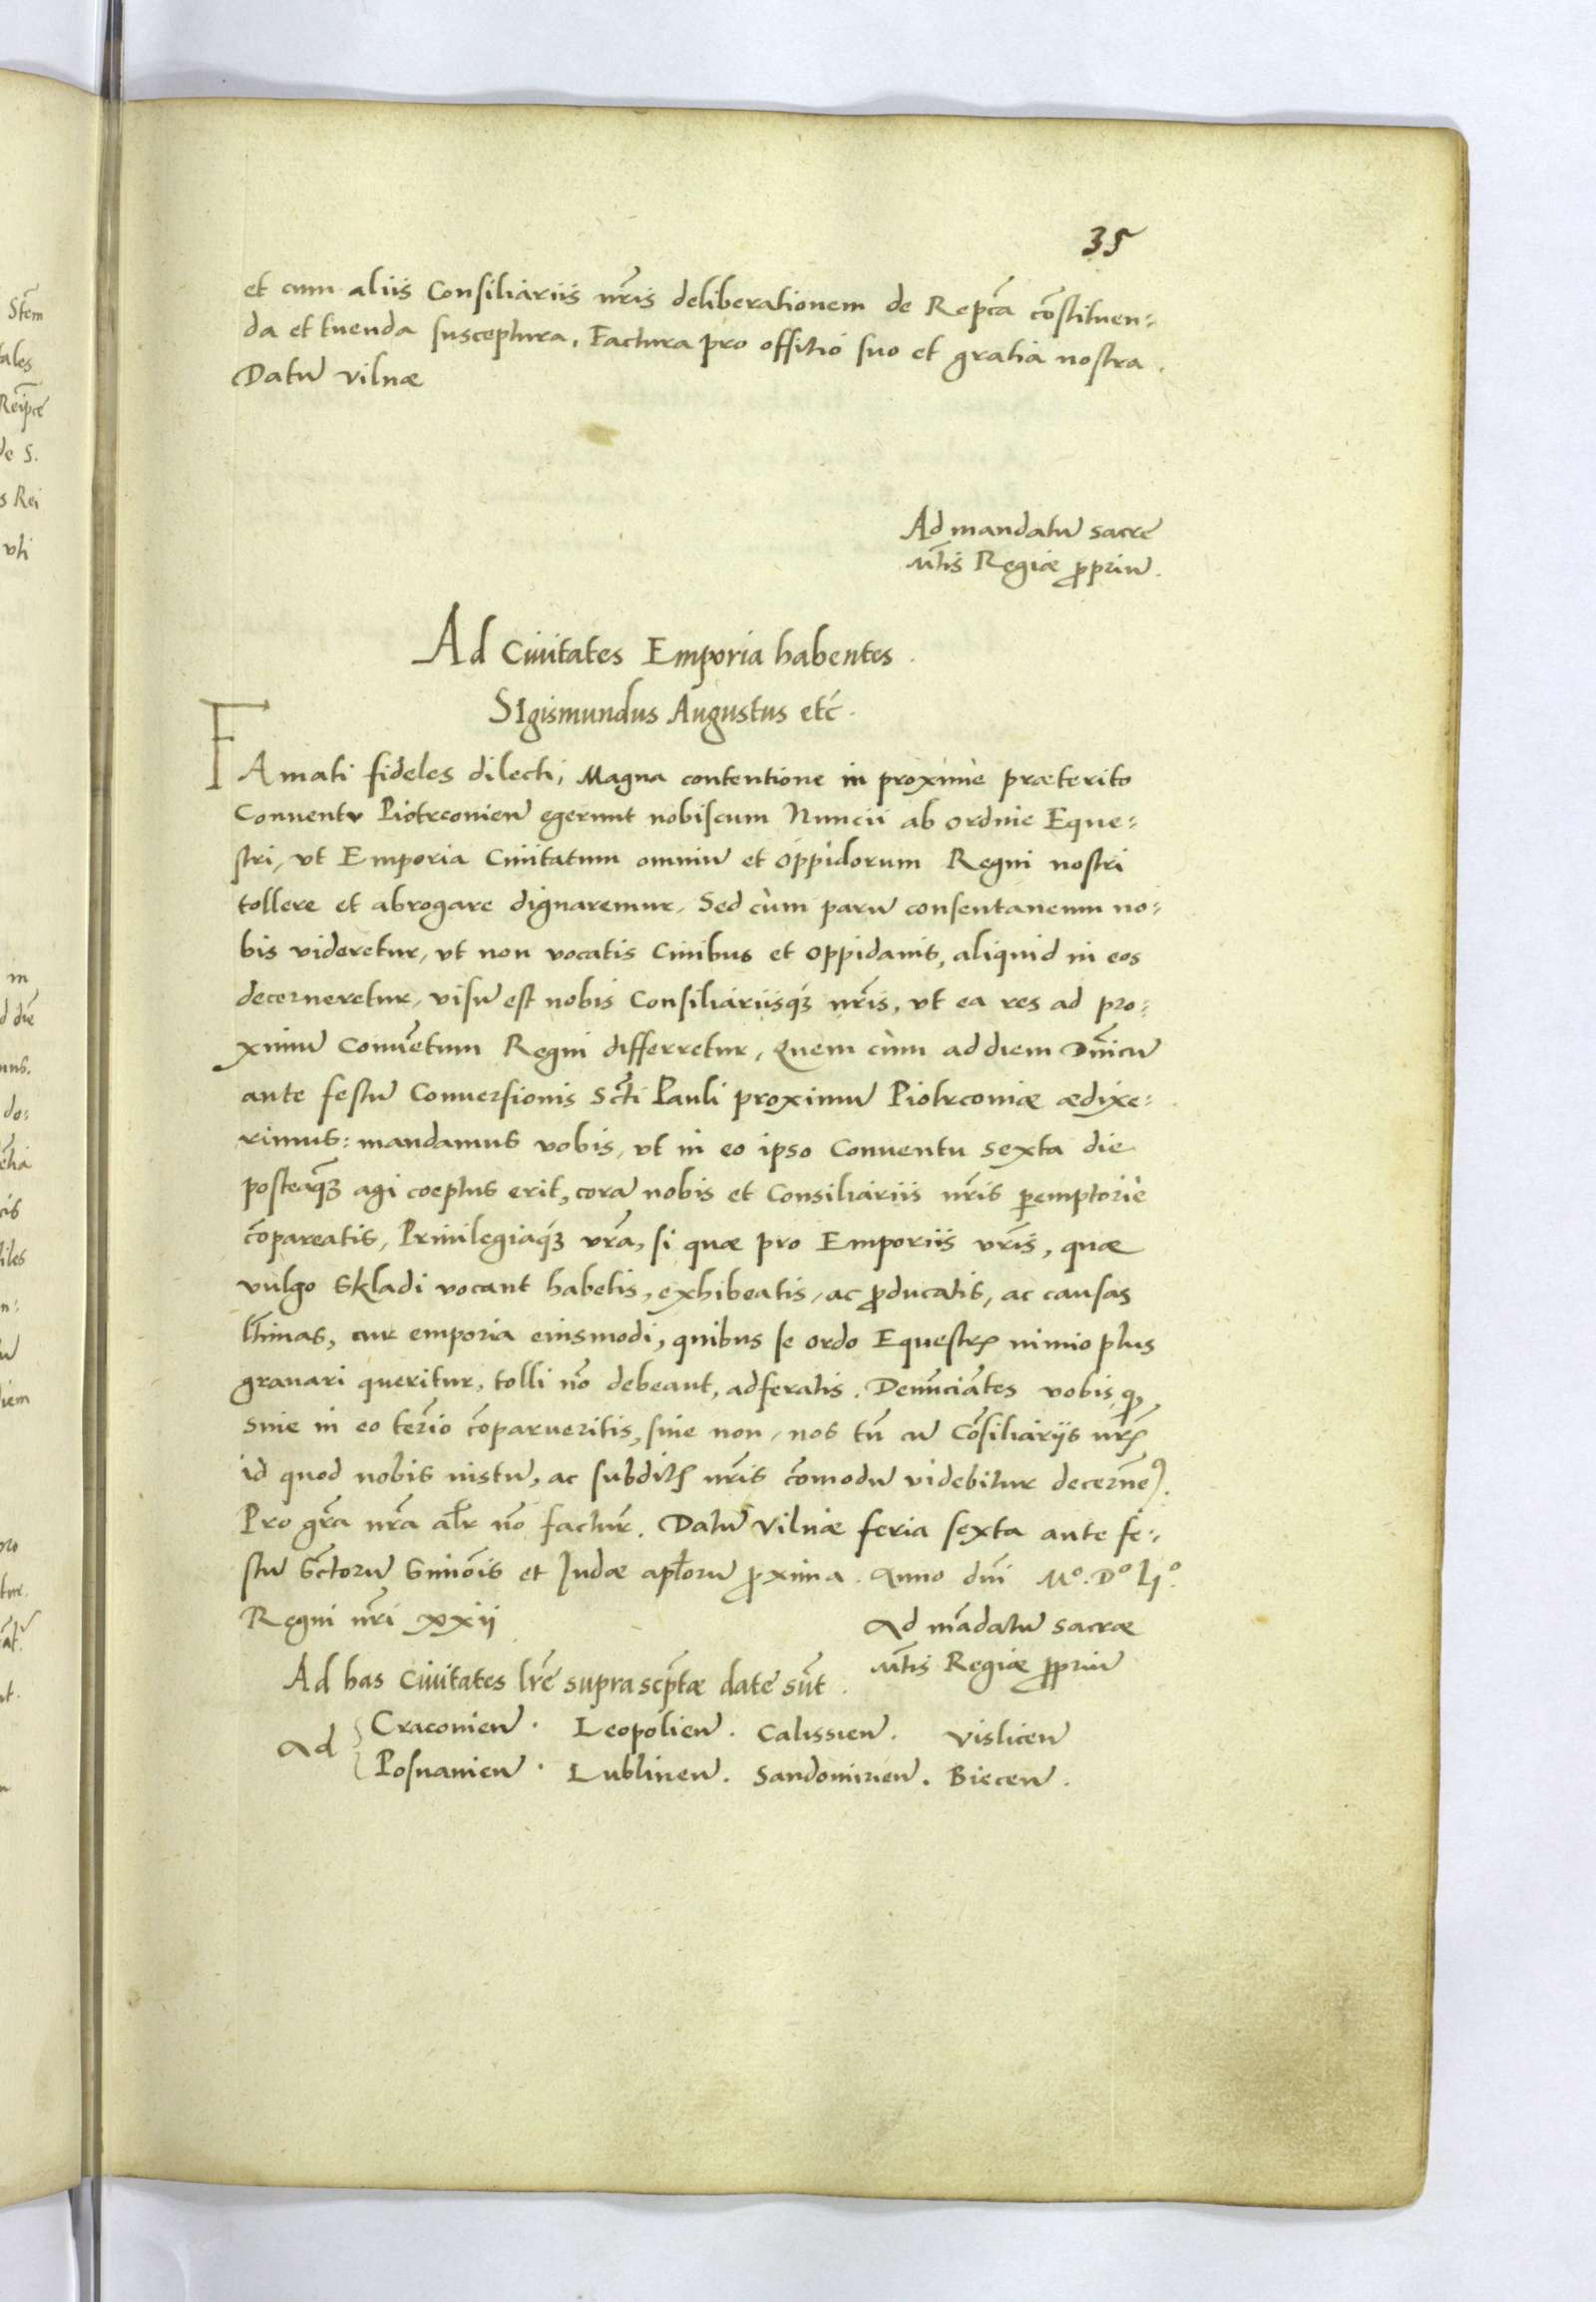 35
et cum aliis Consiliariis nr̃is deliberationem de Rep̃ca cõstituen:
da et tuenda susceptura. Factura pro offitio suo et gratia nostra.
Datũ vilnæ
Ad mandatũ sacre
M̃tis Regiæ ꝓpriũ.
Ad Ciuitates Emporia habentes.
SIgismundus Augustus etc̃.
FAmati fideles dilecti, Magna contentione in proxime præterito
Conuentu Piotrconieñ egerunt nobiscum Nuncii ab ordine Eque:
stri, vt Emporia Ciuitatum omniũ et oppidorum Regni nostri
tollere et abrogare dignaremur. Sed cùm parũ consentaneum no:
bis videretur, vt non vocatis Ciuibus et oppidanis, aliquid in eos
decerneretur, visũ est nobis Consiliariisqꝫ nr̃is, vt ea res ad pro:
ximũ Conuẽtum Regni differretur, Quem cùm ad diem Dñicũ
ante festũ Conuersionis Sc̃ti Pauli proximũ Piotrconiæ ædixe:
rimus: mandamus vobis, vt in eo ipso Conuentu sexta die
posteaqꝫ agi coeptus erit, corã nobis et Consiliariis nr̃is ꝑemptoriè
cõpareatis, Priuilegiaqꝫ vr̃a, si quæ pro Emporiis vr̃is, quæ
vulgo Skladi vocant habetis, exhibeatis, ac ꝓducatis, ac causas
l̃timas, cur emporia eiusmodi, quibus se ordo Equestrꝭ nimio plus
grauari queritur, tolli nõ debeant, adferatis. Denũciãtes vobis, ꝙ
siue in eo ter̃io cõparueritis, siue non, nos tñ cũ Cõsiliariis nrꝭ
id quod nobis iustũ, ac subditꝭ nr̃is cõmodũ videbitur decernẽꝰ.
Pro gr̃a nr̃a alr̃ nõ factur̃. Datũ Vilnæ feria sexta ante fe:
stũ Sctorũ Simõis et Iudæ apl̃orũ ꝓxima. Anno dñi Mº. Dº Ljº.
Regni nr̃i xxii
Ad mãdatũ sacræ
M̃tis Regiæ ꝓpriũ
Ad has Ciuitates lr̃e suprascp̃tæ date sũt.
Ad { Craconieñ. Leopolieñ. Calissieñ. Visliceñ
Posnanieñ. Lublineñ. Sandomirieñ. Bieceñ.